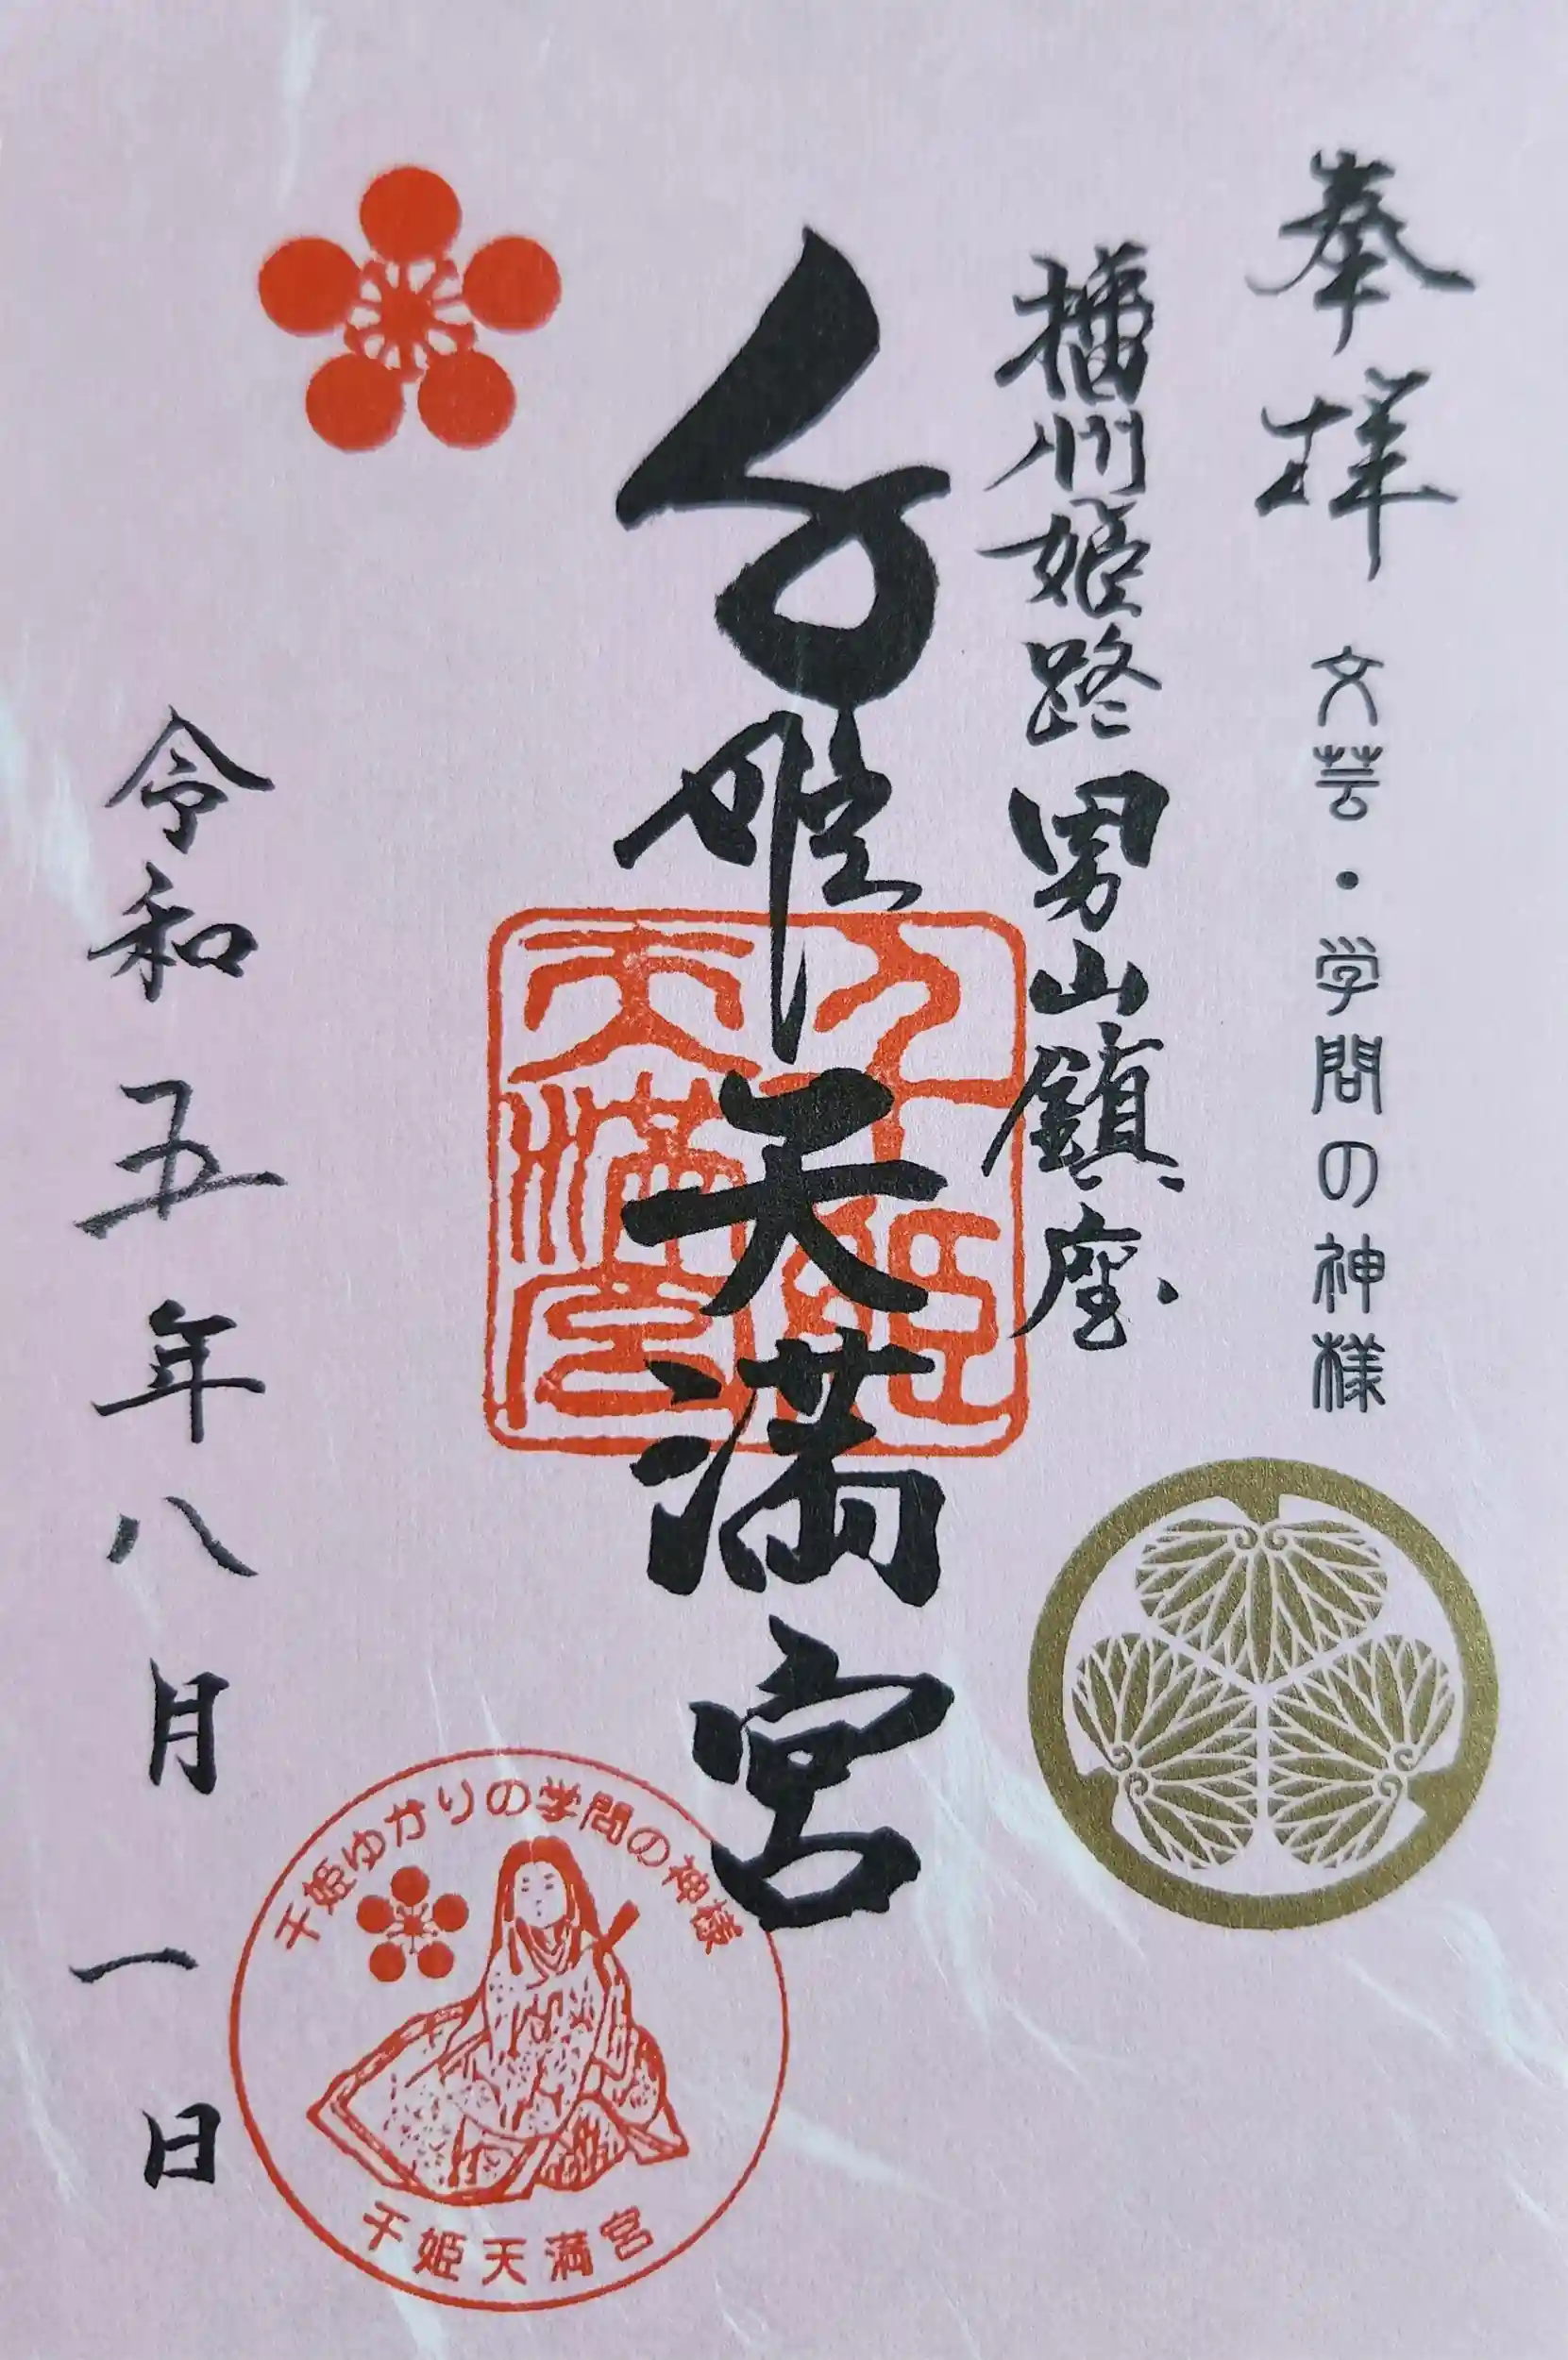 奉拝
文芸・学問の神様
播州姫路男山鎮座
千姫天満宮
千姫天満宮
令和五年八月一日
千姫ゆかりの学問の神様
千姫天満宮